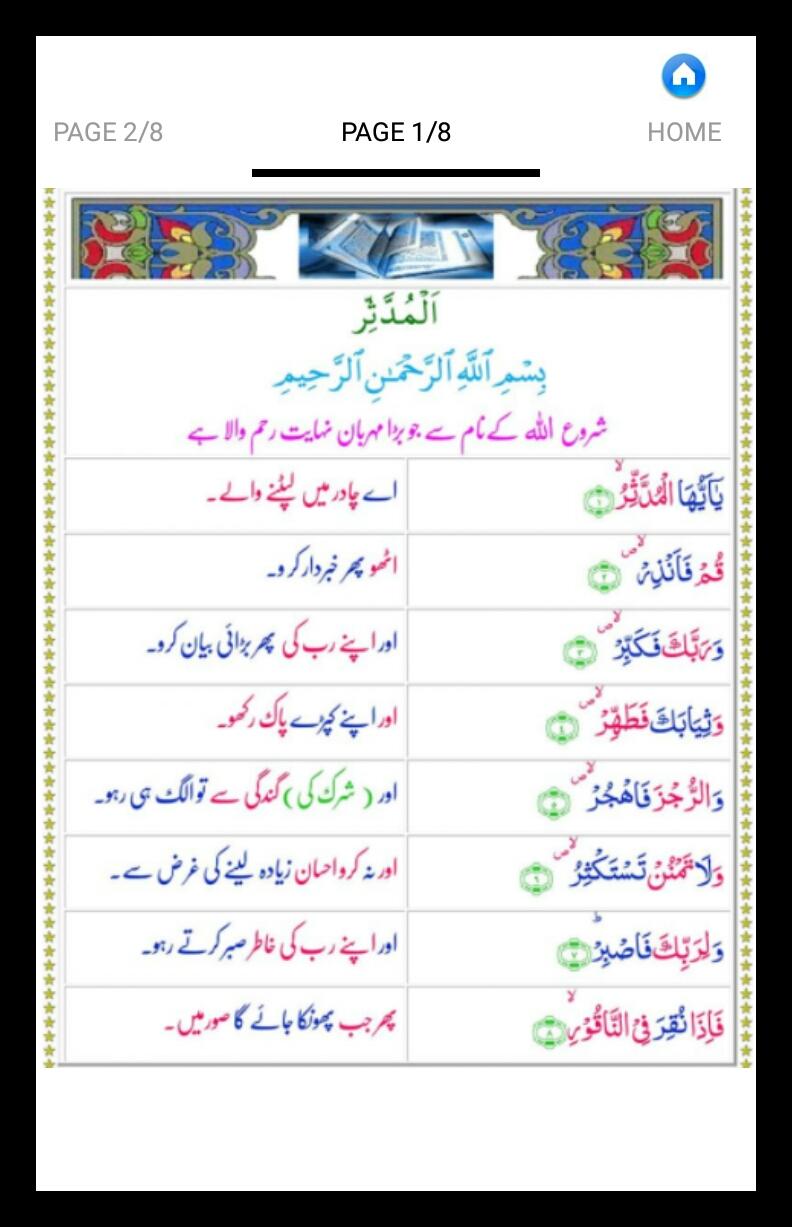 PAGE 2/8 PAGE 1/8 HOME
اَلْمُدَّثِّر
بِسْمِ ٱللَّهِ ٱلرَّحْمَـٰنِ ٱلرَّحِيمِ
شروع اللہ کے نام سے جو بڑا مہربان نہایت رحم والا ہے
يٰٓاَيُّهَا الْمُدَّثِّرُ ۙ‏ ﴿۱﴾ اے چادر میں لپٹنے والے۔
قُمْ فَاَنْذِرْ ۙ ۪ ﴿۲﴾ اٹھو پھر خبردار کر و۔
وَرَبَّكَ فَكَبِّرْ ۙ ۪ ﴿۳﴾ اور اپنے رب کی پھر بڑائی بیان کرو۔
وَثِيَابَكَ فَطَهِّرْ ۙ ۪ ﴿۴﴾ اور اپنے کپڑے پاک رکھو۔
وَالرُّجْزَ فَاهْجُرْ ۙ ۪ ﴿۵﴾ اور ( شرک کی) گندگی سے تو الگ ہی رہو۔
وَلَا تَمْنُنْ تَسْتَكْثِرُ ۙ ۪ ﴿۶﴾ اور نہ کرو احسان زیادہ لینے کی غرض سے۔
وَلِرَبِّكَ فَاصْبِرْ ؕ ﴿۷﴾ اور اپنے رب کی خاطر صبر کرتے رہو۔
فَاِذَا نُقِرَ فِى النَّاقُوْرِ ۙ ﴿۸﴾ پھر جب پھونکا جائے گا صور میں۔